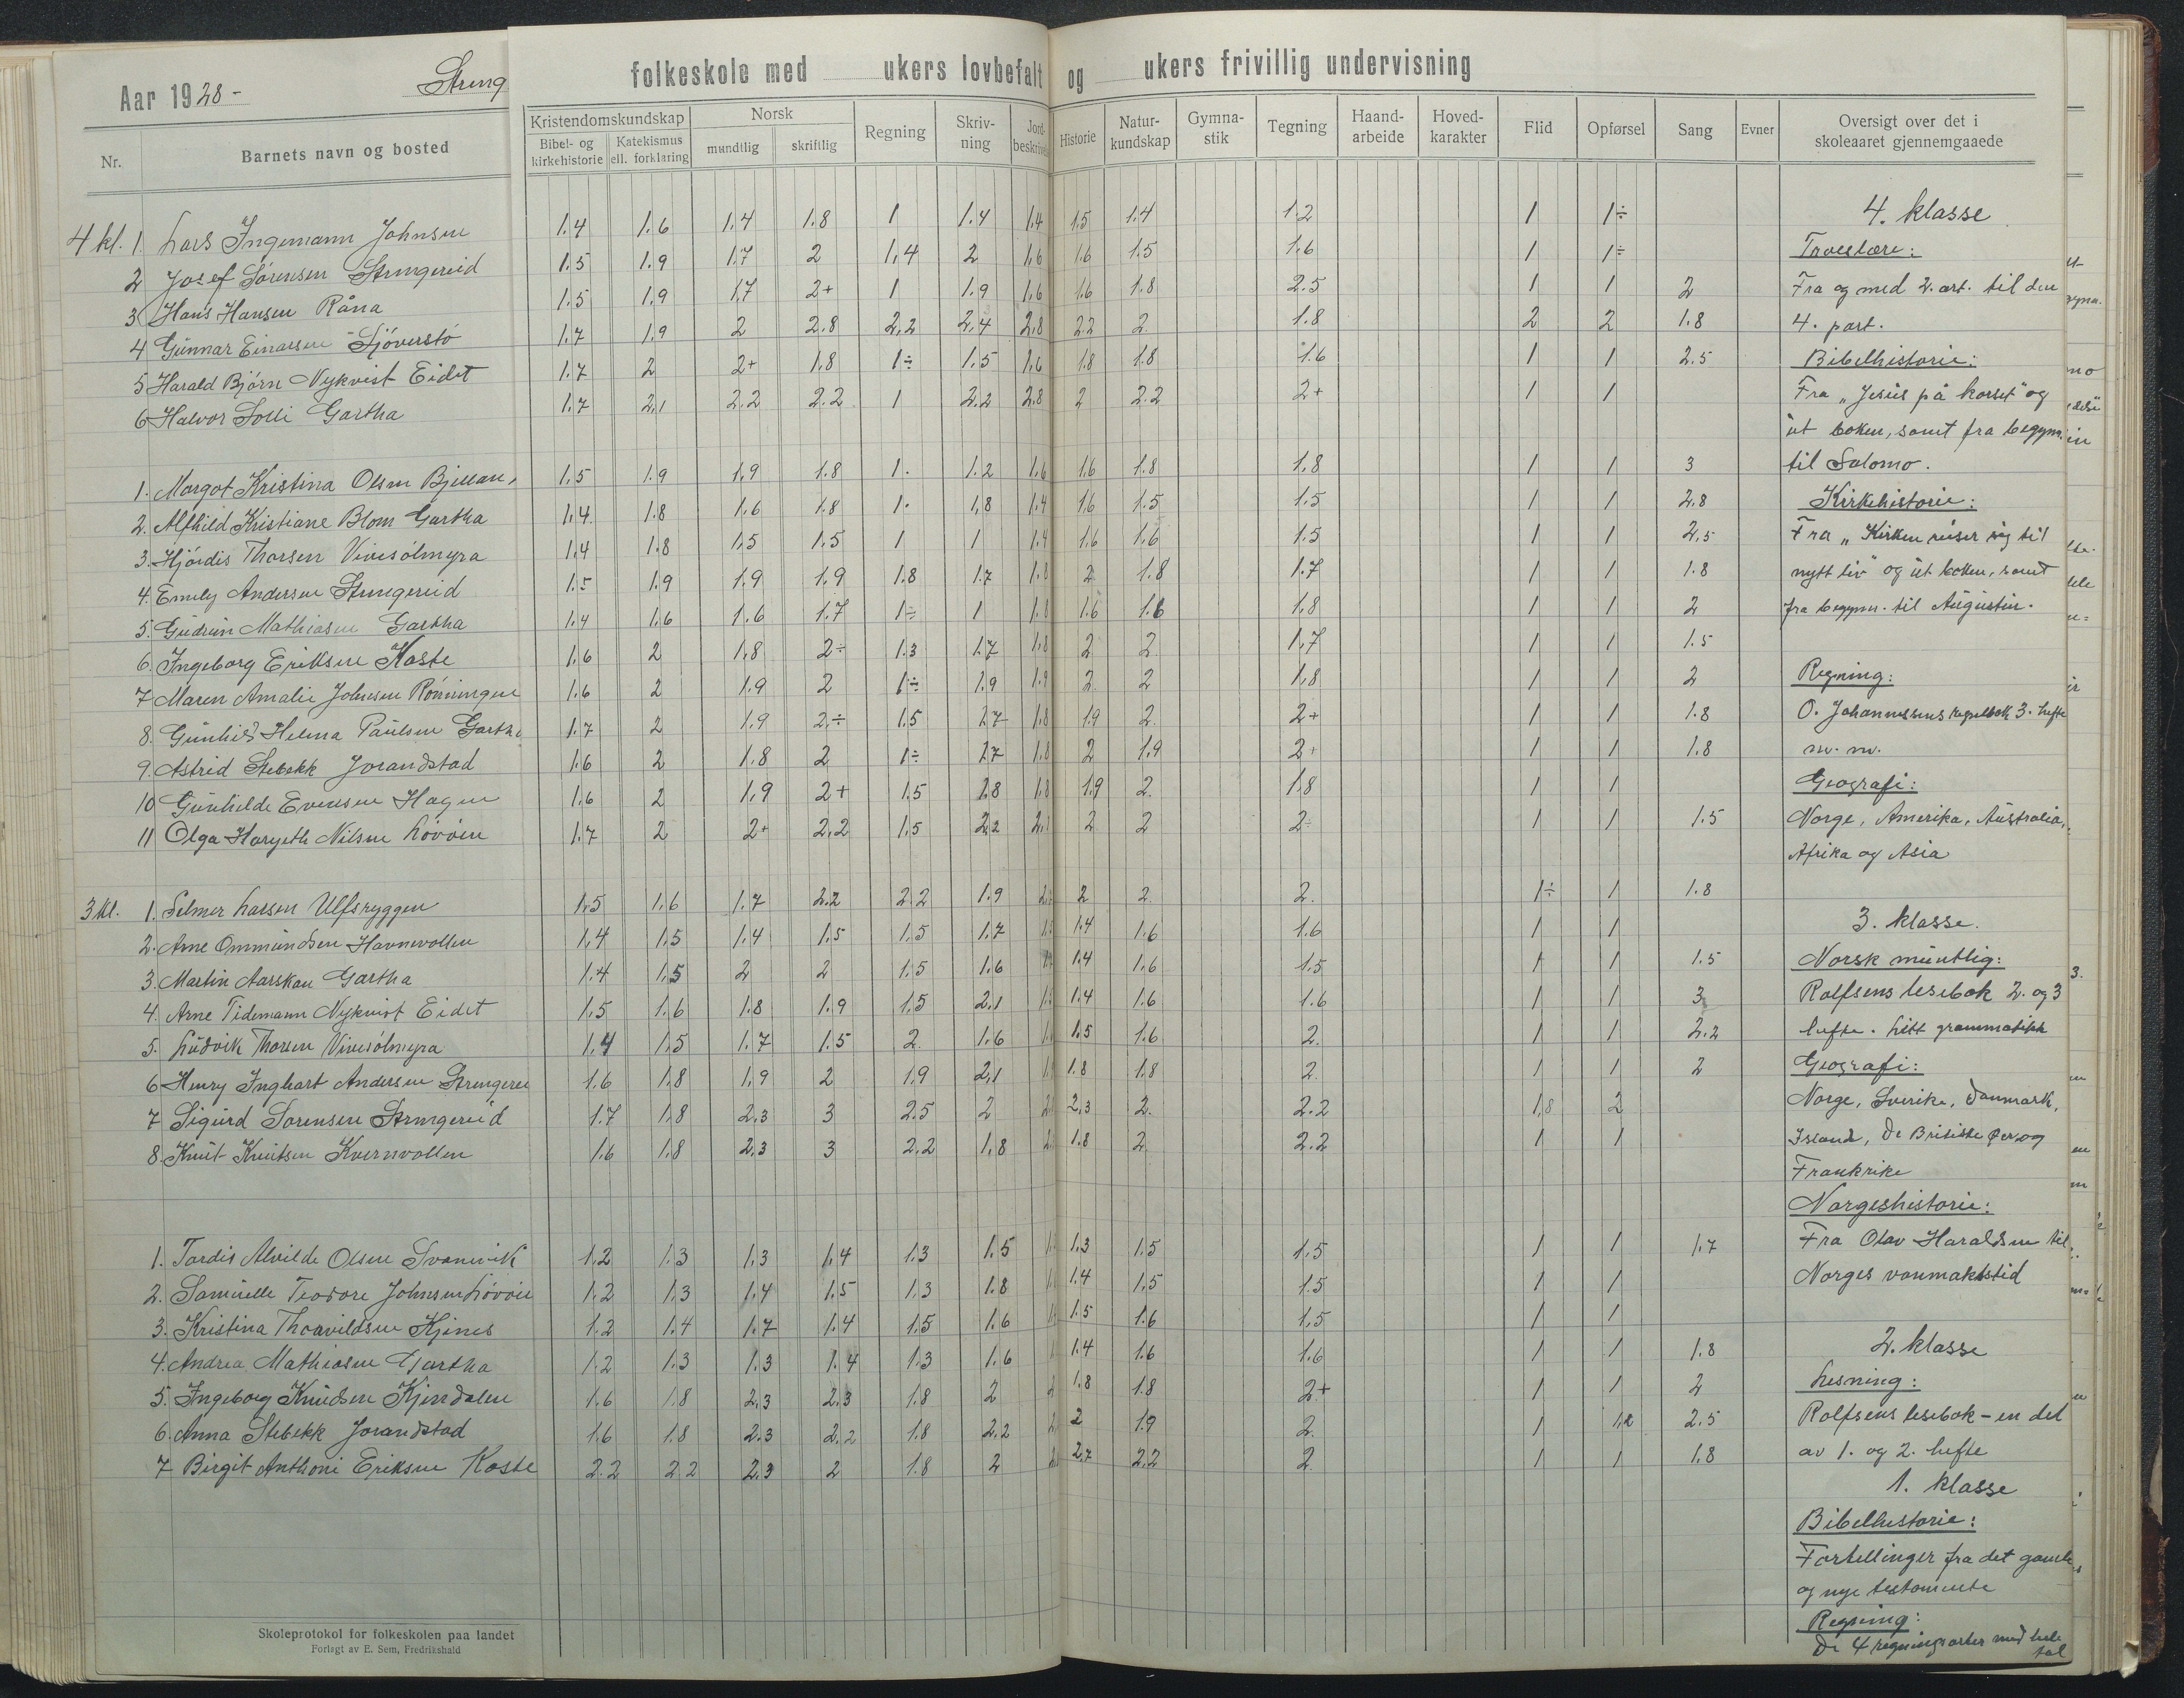 Aar 1928- Streng folkeskole med ukers lovbefalt og ukers frivillig undervisning
Nr. Barnets navn og bosted Kristendomskundskap Bibel- og kirkehistorie Katekismus ell. forklaring Norsk mundtlig skriftlig Regning Skriv-ning Jord-beskrivelse Historie Natur-kundskap Gymna-stik Tegning Haand-arbeide Hoved-karakter Flid Opførsel Sang Evner Oversigt over det i skoleaaret gjennemgaaede
4 kl. 1. Lars Ingemann Johnsen 1.4 1.6 1.4 1.8 1 1.4 1.4 1.5 1.4 1.2 1 1÷
2 Josef Sørensen Strengereid 1.5 1.9 1.7 2 1,4 2 1,6 1.6 1.5 1.6 1 1÷
3 Hans Hansen Råna 1.5 1.9 1,7 2+ 1 1.9 1,6 1.6 1.8 2.5 1 1 2
4 Gunnar Einarsen Sjøverstø 1.7 1.9 2 2.8 2,2 2,4 2,8 2.2 2. 1.8 2 2 1.8
5 Harald Bjørn Nykvist Eidet 1.7 2 2+ 1.8 1÷ 1.5 1,6 1.8 1.8 1.6 1 1 2.5
6 Halvor Solli Gartha 1.7 2,1 2.2 2.2 1 2.2 2.8 2 2.2 2+ 1 1
1. Margot Kristina Olsen 1.5 1.9 1.9 1.8 1. 1.2 1.6 1.6 1.8 1.8 1 1 3
2. Alfhild Kristiane Blom Gartha 1,4 1.8 1.6 1.8 1. 1,8 1.4 1.6 1.5 1.5 1 1 2.8
3. Hjørdis Thorsen Vivesølmyra 1,4 1.8 1,5 1.5 1 1 1.4 1.6 1.6 1.5 1 1 2,5
4. Emely Andersen Strengereid 1.5 1.9 1.9 1.9 1.8 1.7 1.8 2 1.8 1.7 1 1 1.8
5. Gudrun Mathiasen Gartha 1,4 1,6 1.6 1.7 1÷ 1 1.8 1.6 1.6 1,8 1 1 2
6. Ingeborg Eriksen Kaste 1,6 2 1,8 2÷ 1.3 1.7 1,8 2 2 1,7 1 1 1.5
7 Maren Amalie Johnsen Rønningen 1.6 2 1.9 2 1÷ 1.9 1.9 2 2 1,8 1 1 2
8. Gunhild Helma Paulsen Gartha 1.7 2 1.9 2.÷ 1.5 1.7 1.8 1.9 2. 2+ 1 1 1.8
9. Astrid Stebekk Jorandstad 1.6 2 1.8 2 1÷ 1.7 1.8 2 1.9 2+ 1 1 1.8
10 Gunhilde Evensen Hagen 1.6 2 1,9 2+ 1.5 1.8 1,8 1.9 2. 1.8 1 1
11 Olga Nilsen Løvøen 1.7 2 2+ 2.2 1.5 2.2 2 2 2÷ 1 1 1.5
3 kl. 1. Selmer Larsen Ulfsryggen 1,5 1,6 1.7 2.2 2.2 1.9 2 2. 2. 1÷ 1 1.8
2. Arne Ommundsen Havnevollen 1,4 1.5 1.4 1.5 1.5 1.7 1.4 1.6 1.6 1 1
3. Martin Aarskau Gartha 1.4 1,5 2 2 1.5 1.6 1.4 1.6 1.5 1 1 1.5
4. Arne Tidemann Nykvist Eidet 1.5 1.6 1.8 1.9 1.5 2.1 1.4 1.6 1.6 1 1 3
5. Ludvik Thorsen Vivesølmyra 1.4 1.5 1.7 1.5 2. 1.6 1.5 1.6 2. 1 1 2.2
6 Henry Inghart Andersen 1.6 1.8 1,9 2 1.9 2,1 1.8 1.8 2. 1 1 2
7 Sigurd Sørensen Strengereid 1.7 1,8 2.3 3 2.5 2 2,3 2. 2.2 1,8 2
8. Knut Knutsen Kvernvollen 1.6 1.8 2.3 3 2.2 1,8 1.8 2 2.2 1 1
1. Tordis Alvilde Olsen Svanevik 1.2 1.3 1.3 1,4 1.3 1.5 1.3 1.5 1.5 1 1 1.7
2. Samuelle Teodore Johnsen Løvøen 1.2 1.3 1.4 1.5 1.3 1.8 1.4 1.5 1.5 1 1
3. Kristina Thorvildsen Kjenes 1.2 1.4 1.7 1.4 1.5 1.6 1.5 1.6 1,5 1 1
4. Andrea Mathiasen Gartha 1.2 1.3 1.3 1.4 1.3 1.6 1.4 1.6 1.6 1 1 1.8
5. Ingeborg Knudsen Kjenndalen 1.6 1.8 2,3 2.3 1.8 2 1.8 1.8 2+ 1 1 2
6. Anna Stebekk Jorandstad 1.6 1.8 2.3 2.2 1.8 2.2 2 1.9 2. 1 1,2 2.5
7 Birgit Anthoni Eriksen Kaste 2.2 2.2 2,3 2 1.8 2 2,7 2.2 2. 1 1 1,8
4. klasse
Troeslære:
Fra og med 2. art. til den
4. part.
Bibelhistorie:
Fra „Jesus på korset" og
ut boken, samt fra begynn.
til Salomo.
Kirkehistorie:
Fra „Kirken reiser sig til
nytt liv" og ut boken, samt
fra begynn. til Augustin.
Regning:
O. Johannesens regnebok 3. hefte
m. m.
Geografi:
Norge, Amerika, Australia,
Afrika og Asia
3. klasse.
Norsk muntlig:
Rolfsens lesebok 2. og 3
hefte. Litt grammatikk
Geografi:
Norge, Sverike, Danmark,
Island, De Britiske Øer og
Frankrike
Norgeshistorie:
Fra Olav Haraldsen til
Norges vanmaktstid
2. klasse
Lesning:
Rolfsens lesebok - en del
av 1. og 2. hefte
1. klasse
Bibelhistorie:
Fortellinger fra det gamle
og nye testamente
Regning:
De 4 regningsarter med hele
tal
Skoleprotokol for folkeskolen paa landet
Forlagt av E. Sem, Fredrikshald